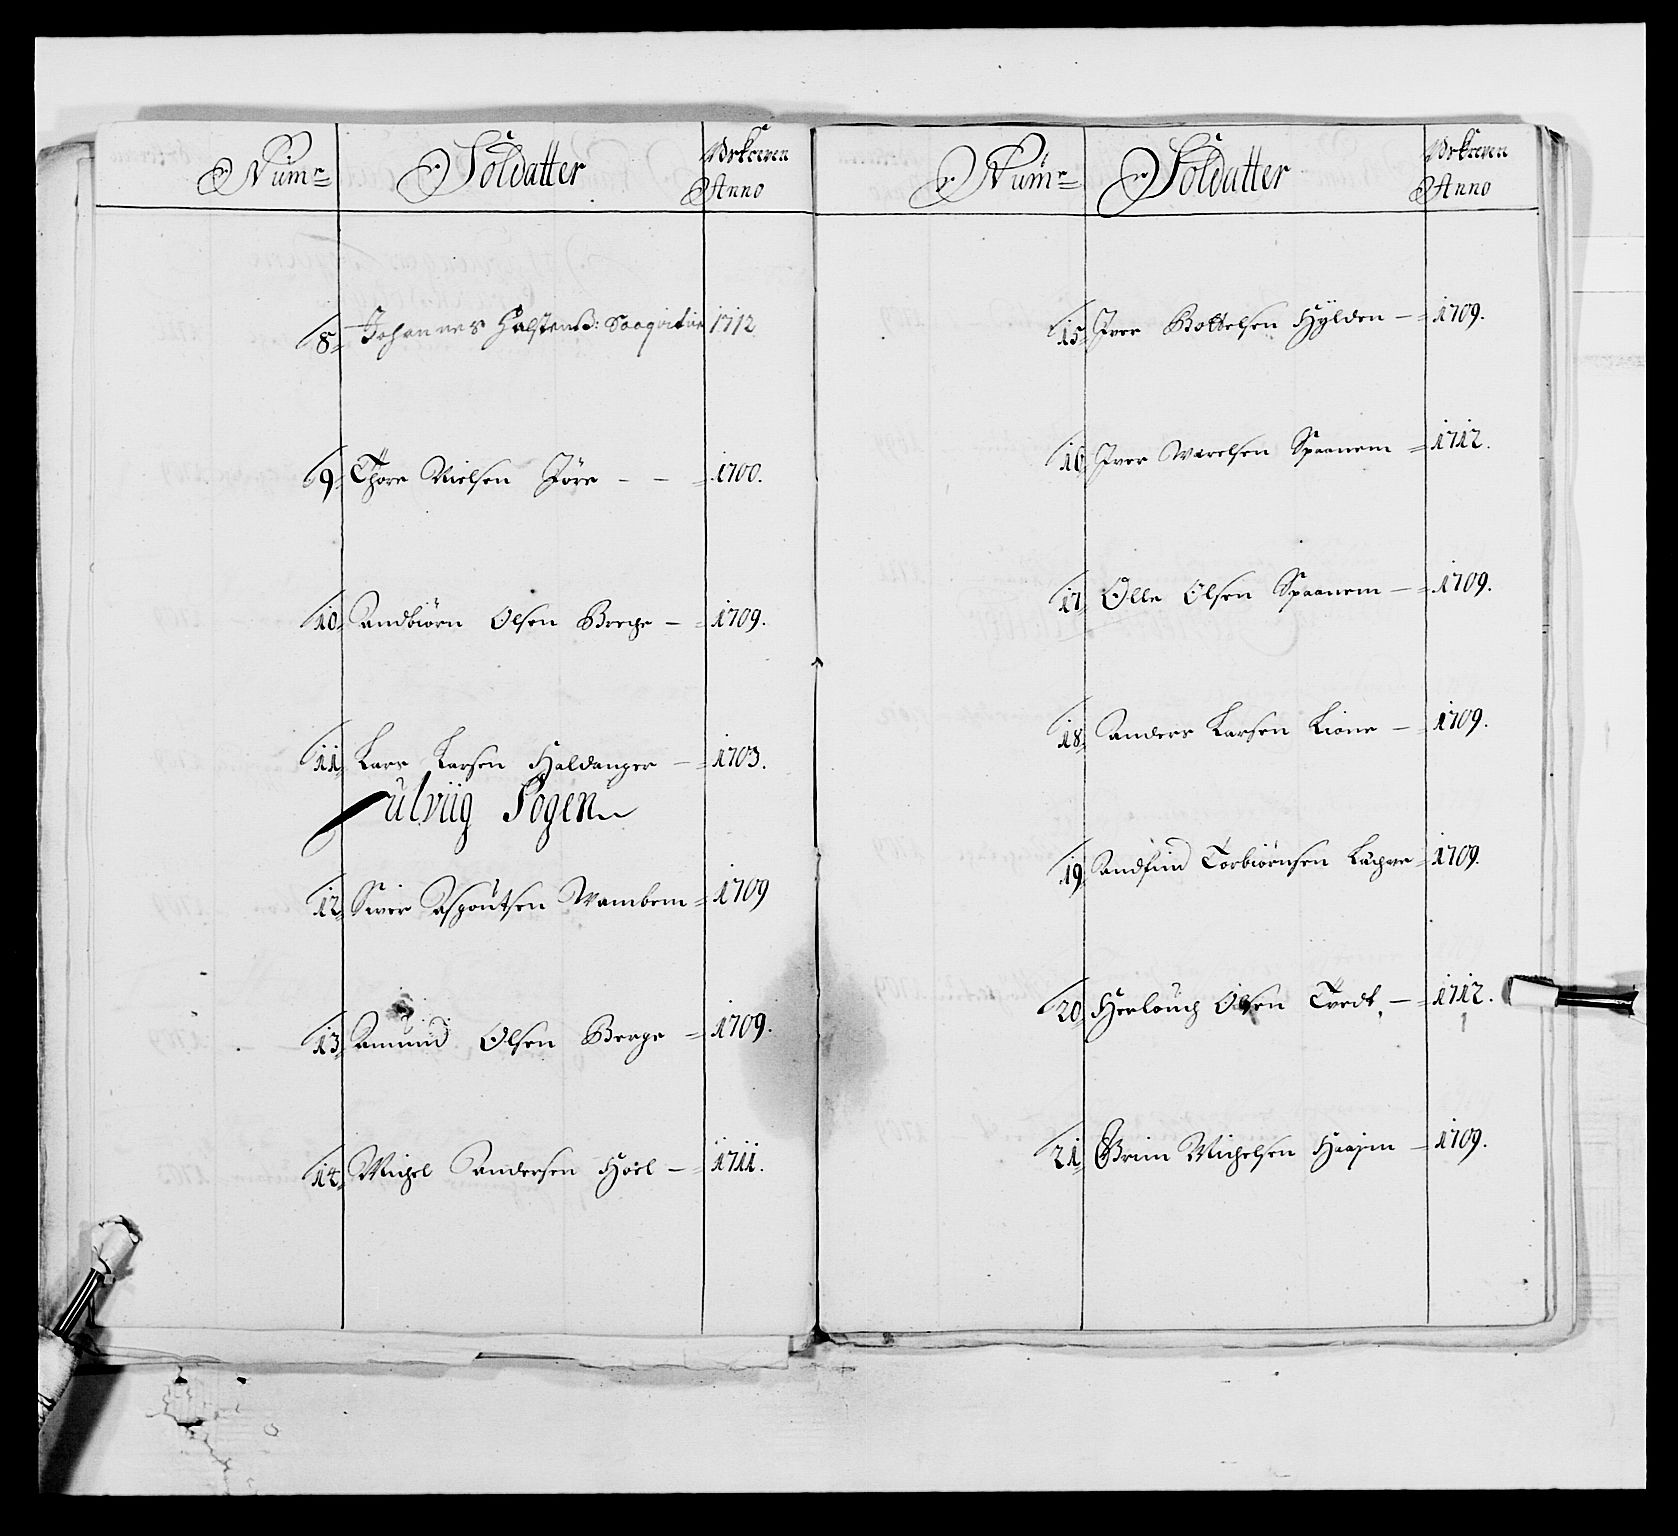 Num:
Soldatter
Vrkreven Anno
8 Johannes Halstenß: 1712
9 Thore Nielsen Jøre - - = 1700.
10 Andbiørn Olsen Brege - = 1709.
11 Lars Larsen Haldanger - = 1703.
Ulviig Sogen
12 Siver Asgoutsen Wambem = 1709
13 Amund Olsen Berge = 1709.
14 Michel Andersen Hoël - = 1711.
Num:
Soldatter
Vrkreven Anno
15 Iver Bottelsen Hylden - = 1709.
16 Iver Warelsen Spaanem = 1712.
17 Olle Olsen Spaanem - = 1709.
18 Anders Larsen Lione - = 1709.
19 Andfind Torbiørnsen = 1709.
20 Herlouch Olsen Tvedt - = 1712.
21 Brun Michelsen Haajem = 1709.